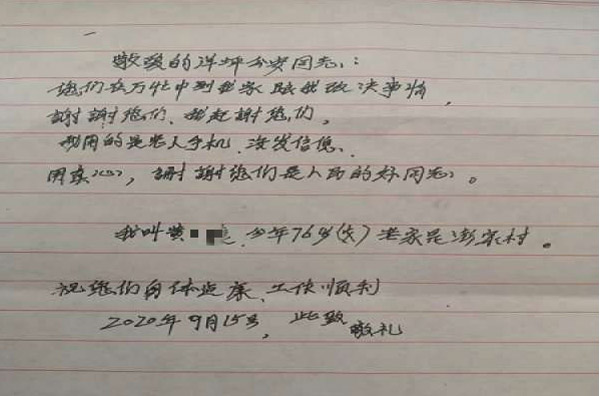 敬爱的洋坪公安同志:
您们在百忙中到我家跟我改决事情,
謝謝您们、我起謝您们,
我用的是老人手机、没发信息、
用真心,謝謝您们是人民的好同志。
我叫黄 今年76岁(女)老家是澎家村。
祝您们身体健康、工作顺利
2020年9月15号, 此致
敬礼